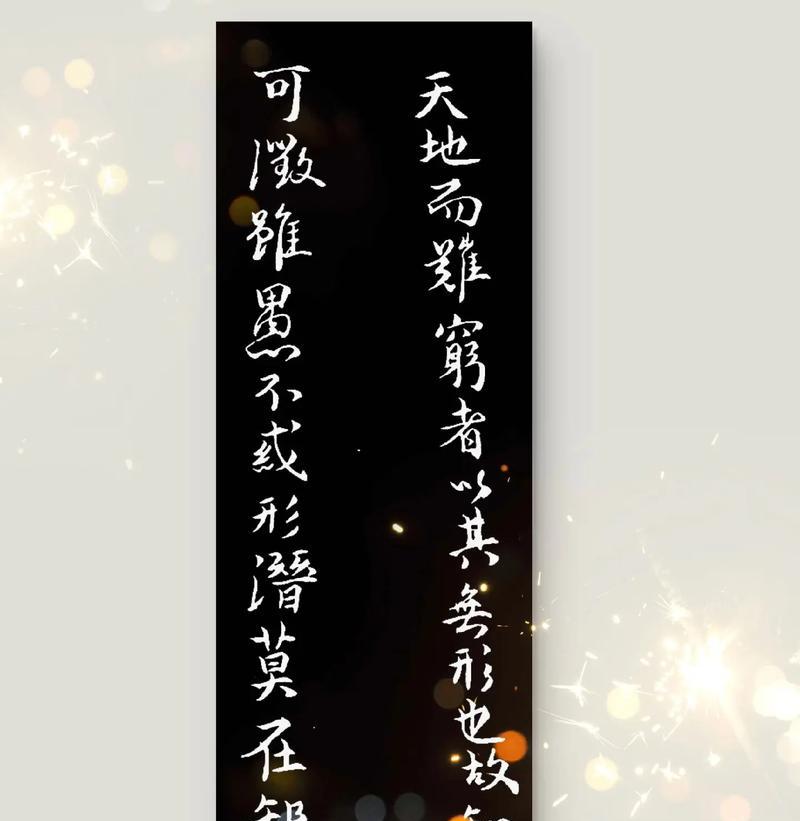 天地而難窮者以其無形也故
可徵雖愚不或形潛莫在